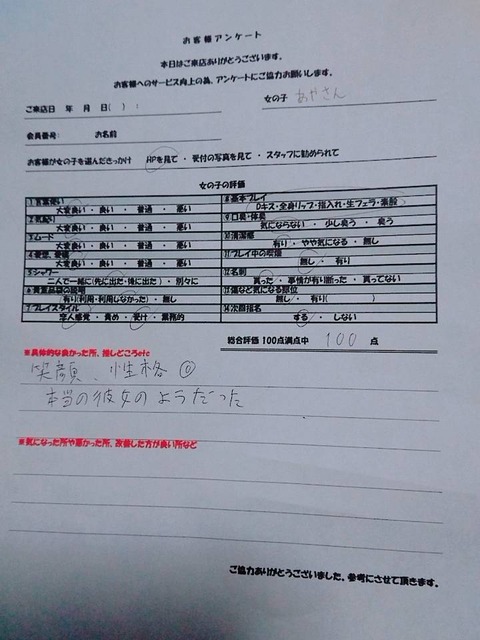 お客様アンケート
本日はご来店ありがとうございます。
お客様へのサービス向上の為、アンケートにご協力お願いします。
ご来店日 年 月 日( ) :
女の子 あやさん
会員番号: お名前
お客様が女の子を選んだきっかけ HPを見て ・ 受付の写真を見て ・ スタッフに勧められて
女の子の評価
1言葉使い
大変良い ・ 良い ・ 普通 ・ 悪い
大変良い ・ 良い ・ 普通 ・ 悪い
3ムード
大変良い ・ 良い ・ 普通 ・ 悪い
大変良い ・ 良い ・ 普通 ・ 悪い
5シャワー
二人で一緒に(先に出た・後に出た) ・ 別々に
有り(利用・利用しなかった) ・ 無し
7プレイスタイル
恋人感覚 ・ 責め ・ 受け ・ 業務的
8基本プレイ
Dキス・全身リップ・指入れ・生フェラ・素股
9口臭・体臭
気にならない ・ 少し臭う ・ 臭う
10清潔感
有り ・ やや気になる ・ 無し
11プレイ中の喫煙
無し ・ 有り
12名刺
貰った ・ 事情が有り断った ・ 貰ってない
無し ・ 有り( )
14次回指名
する ・ しない
総合評価 100点満点中 100 点
※具体的な良かった所、推しどころetc
笑顔、性格 ◎
本当の彼女のようだった
※気になった所や悪かった所、改善した方が良い所など
ご協力ありがとうございました。参考にさせて頂きます。